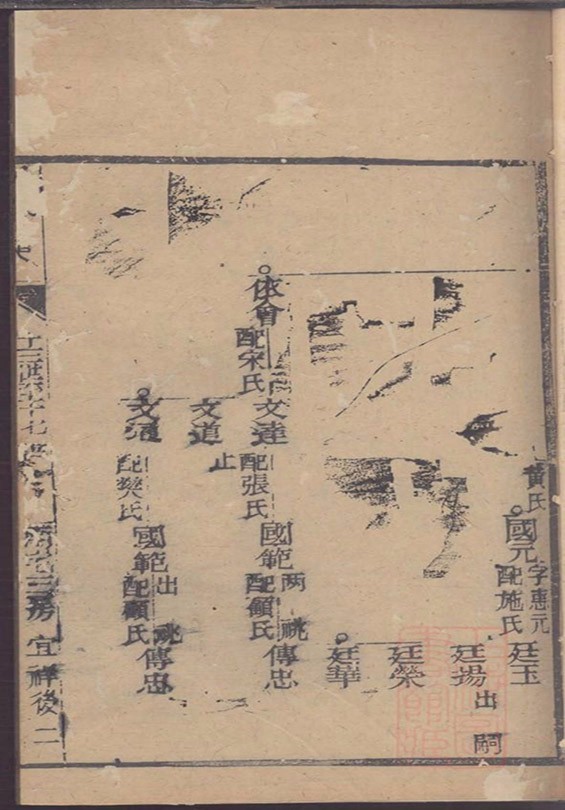 黃氏
國元
字惠元
配施氏
廷玉
廷揚
出嗣
廷榮
廷華
依會
配宋氏
文達
配張氏
國範
两祧
配顧氏
傳忠
文道
止
文通
配樊氏
國範
出祧
配顧氏
傳忠
三房
宜祥後
二